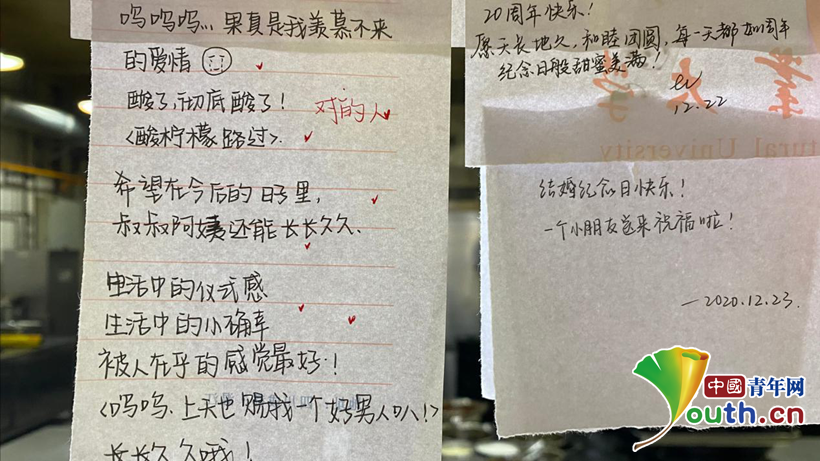 呜呜呜,,, 果真是我羡慕不来
的爱情
酸了,彻底酸了!
对的人
<酸柠檬路过>.
希望在今后的日子里,
叔叔阿姨还能长长久久.
生活中的仪式感
生活中的小确幸
被人在乎的感觉最好!
<呜呜.上天也赐我一个好男人叭!>
长长久久哦!
20周年快乐!
愿天长地久,和睦团圆,每一天都如周年
纪念日般甜蜜美满!
12.22
tural University
结婚纪念日快乐!
一个小朋友送来祝福啦!
—2020.12.23.
中國青年网
youth.cn